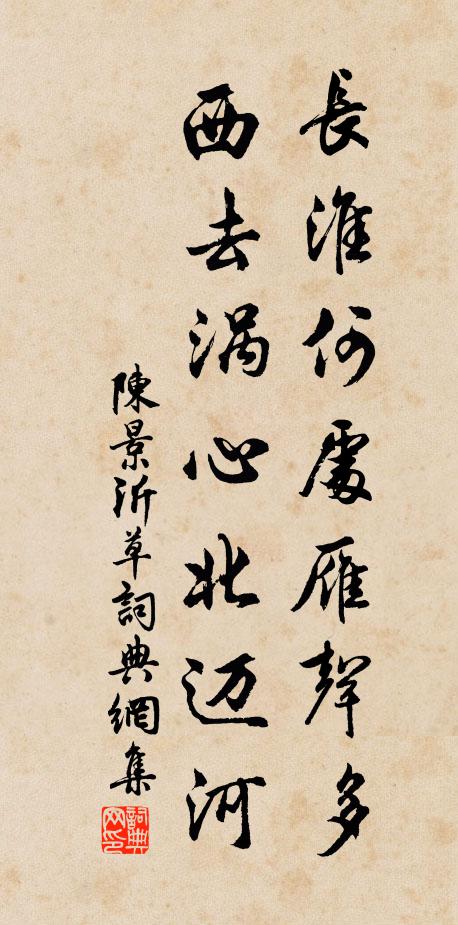 長淮何處雁聲多
西去涡心北迈河
陳景沂草詞典網集
詞典网印